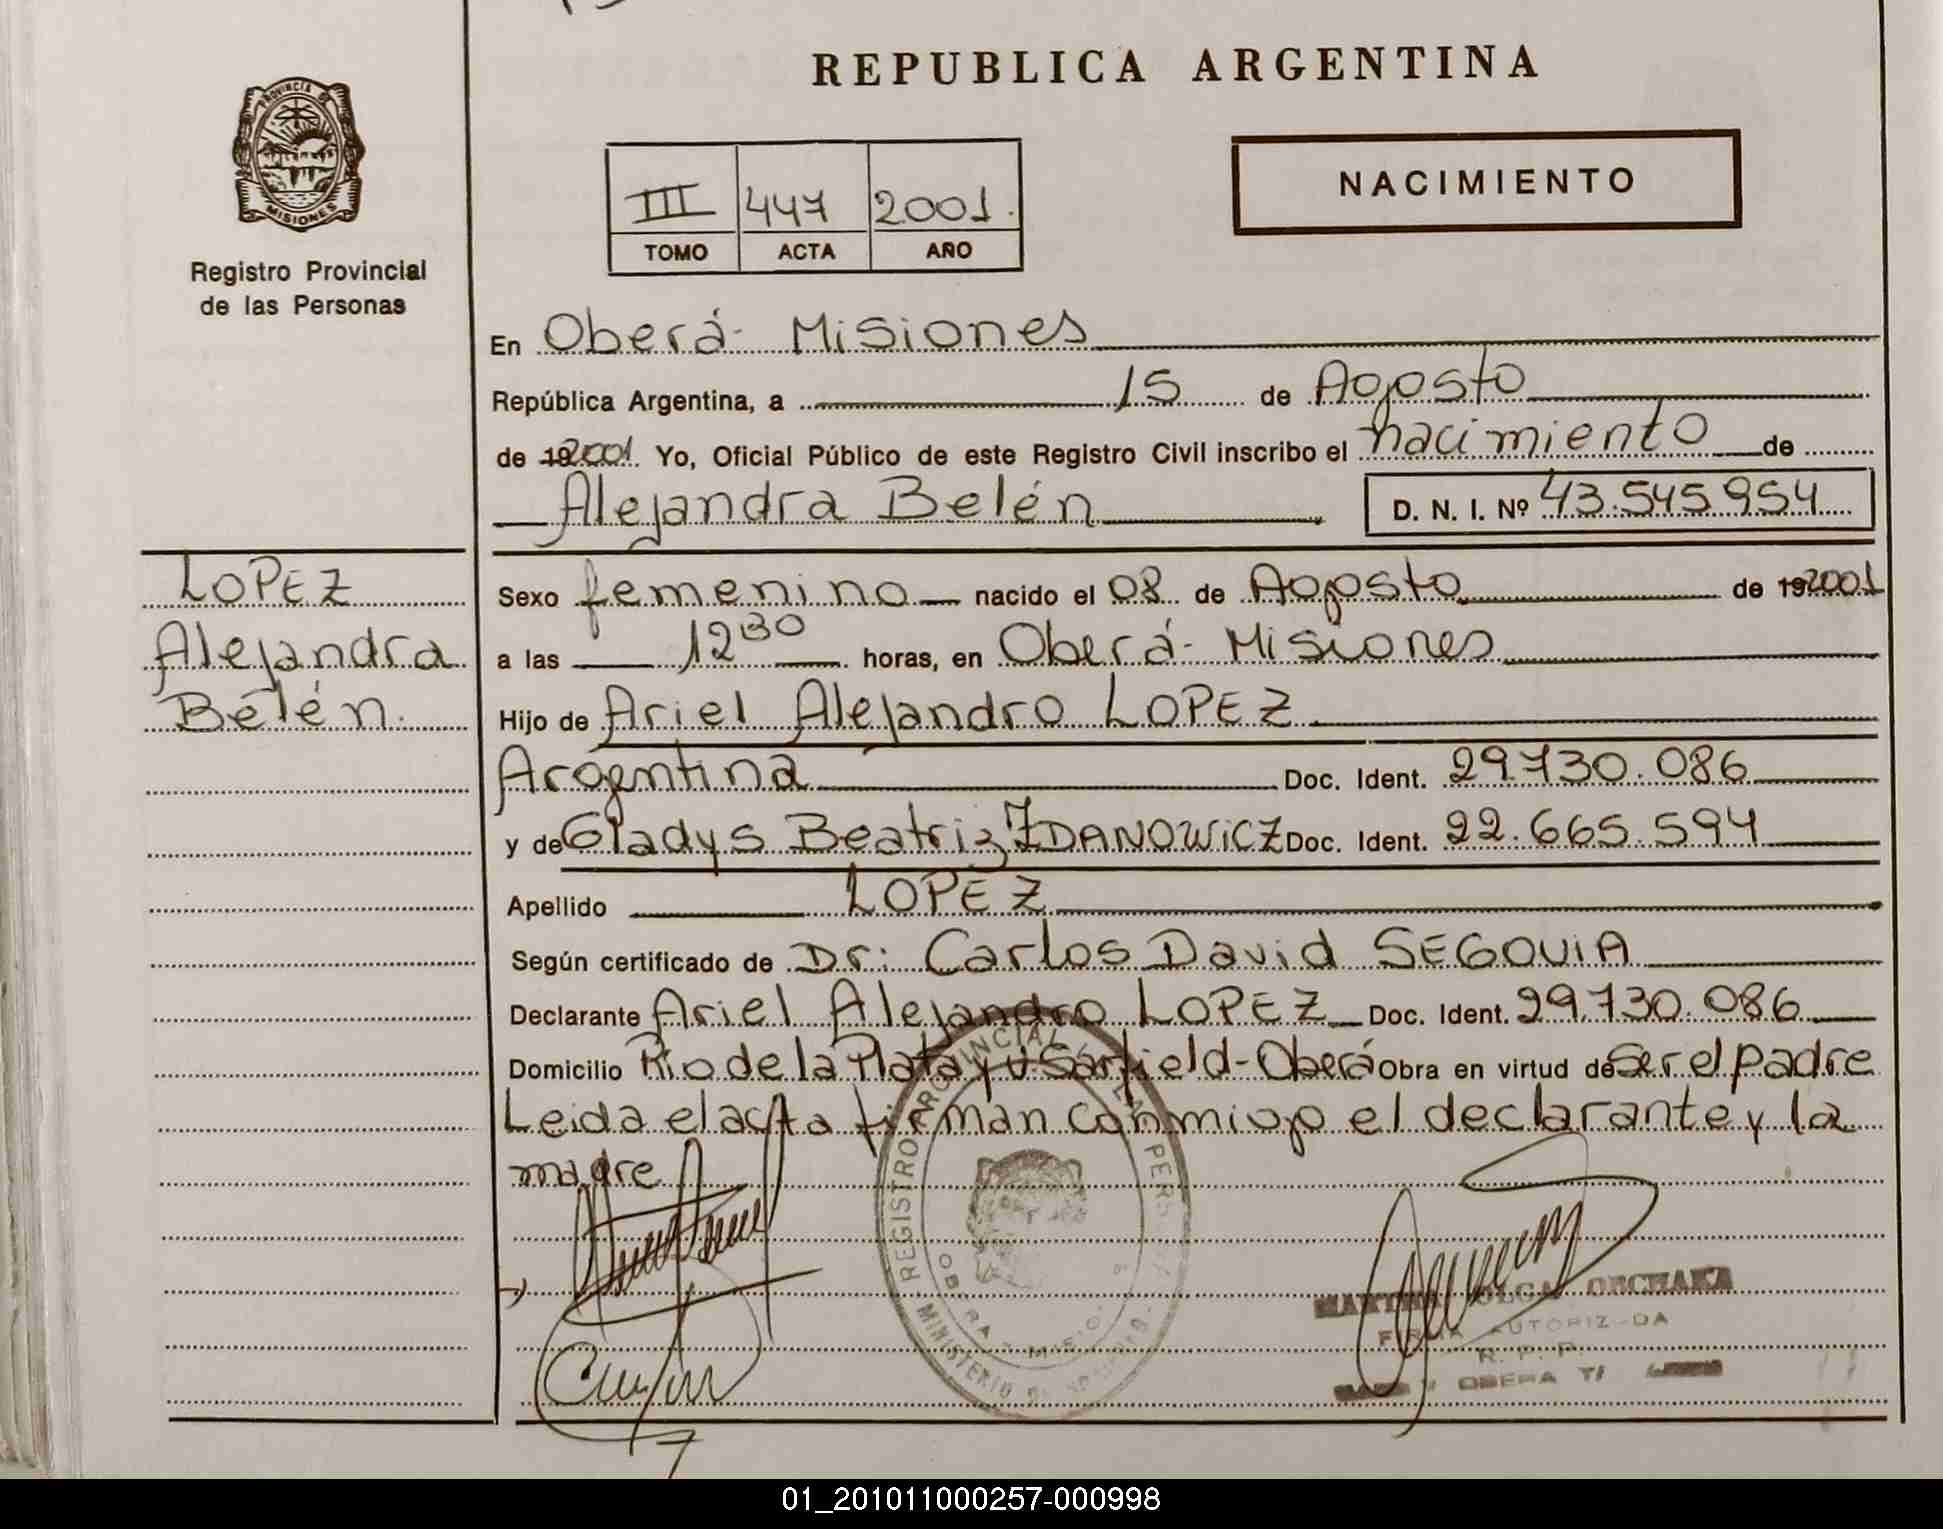 REPUBLICA ARGENTINA
PROVINCIA DE
MISIONES
Registro Provincial
de las Personas
III 447 2001.
TOMO ACTA AÑO
NACIMIENTO
En Oberá- Misiones
República Argentina, a 15 de Agosto
de 192001 Yo, Oficial Público de este Registro Civil inscribo el nacimiento de
Alejandra Belén D. N. I. Nº 43.545954
LOPEZ
Alejandra
Belén.
Sexo femenino nacido el 08 de Agosto de 192001
a las 12³⁰ horas, en Oberá- Misiones
Hijo de Ariel Alejandro LOPEZ
Argentina Doc. Ident. 29.730.086
y de Gladys Beatriz ZDANOWICZ Doc. Ident. 22.665.594
Apellido LOPEZ
Según certificado de Dr: Carlos David SEGOVIA
Declarante Ariel Alejandro LOPEZ Doc. Ident. 29.730.086
Domicilio Rio de la Plata y V Sarfield-Oberá Obra en virtud de ser el padre
Leida el acta firman conmigo el declarante y la
madre
REGISTRO PROVINCIAL DE LAS PERSONAS
OBERA MISIO
MINISTERIO DE
MARTHA OLGA ORCHAKA
FIRMA AUTORIZADA
R. P. P.
OBERA
01_201011000257-000998